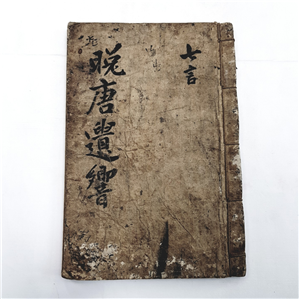 七言
晚唐遺響